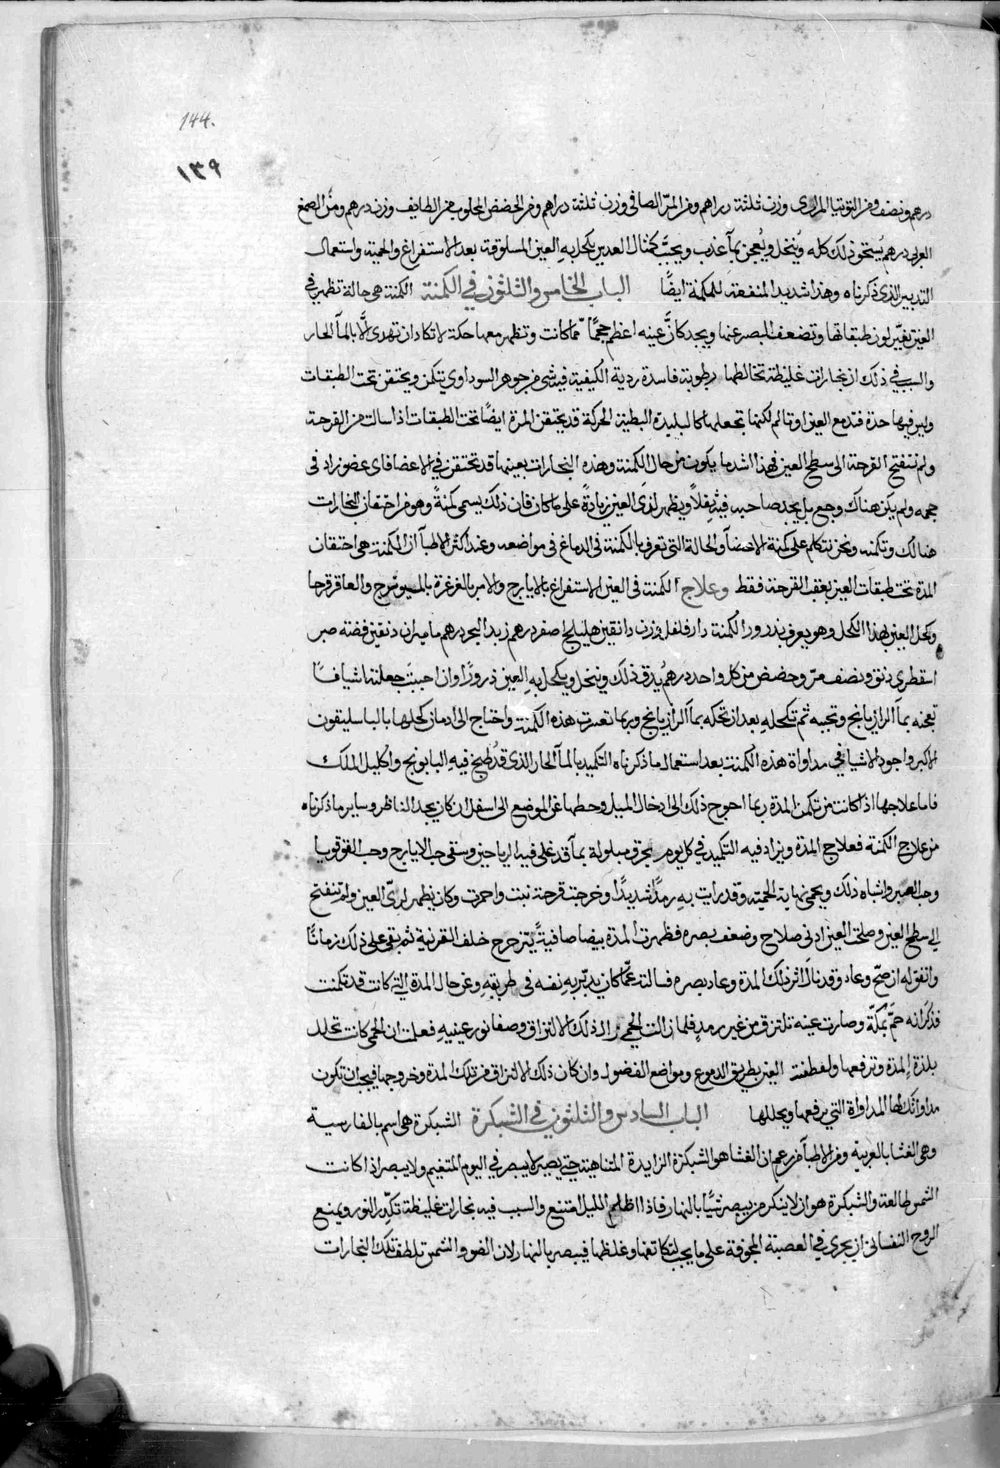 144.
١٣٩
درهم ونصف ومن التوتيا المرازبى وزن ثلثة دراهم ومن المرّ الصافى وزن ثلثة دراهم ومن الحضض المجلوب من الطايف وزن درهم ومن الصمغ
العربى درهم يُسحق ذلك كله ويُنخل ويُعجن بمآ عذب ويحبَّب كمثال العدس يكحل به العين المسلوقة بعد الاستفراغ والحمية واستعمال
التدبير الذى ذكرناه وهذا شديد المنفعة للحكة ايضًا الباب الخامس والثلثون فى الكمنة الكمنة هى حالة تظهر فى
العين تغيّر لون طبقاتها وتضعف البصر عنها ويجد كأنَّ عينه اعظم حجمًا ممّا كانت وتظهر معها حكة لا تكاد ان تهدى الّا بالمآ الحار
والسبب فى ذلك ان بخارات غليظة تخالطها رطوبة فاسدة ردية الكيفية فيشى من جوهر السوداوى يتكمن ويحتقن تحت الطبقات
وليس فيها حدة فتدمع العين او تالم لكنها تجعلها كالبليدة البطية الحركة قد يحتقن المرة ايضًا تحت الطبقات اذا سالت من القرحة
ولم تنفتح القرحة الى سطح العين فهذا اشد ما يكون من حال الكمنة وهذه البخارات بعينها قد تحتقن فى الاعضا فاى عضو زاد فى
حجمه ولم يكن هناك وجع بل يجد صاحبه فيه ثقلاً ويظهر لذى العين زيادةً على ما كان فان ذلك يسمى كمنةً وهو من احتقان البخارات
هنالك وتكمنه ونحن نتكلم على كمنة الاعضآ والحالة التى تعرف بالكمنة فى الدماغ فى مواضعه وعند اكثر الاطبآ ان الكمنة هى احتقان
المدة تحت طبقات العين بعقب القرحة فقط وعلاج الكمنة فى العين الاستفراغ بالايارج والامر بالغرغرة بالميويزج والعاقرقرحا
وكحل العين بهذا الكحل وهو يعرف بذرور الكمنة دارفلفل وزن دانقين هليلج اصفر درهم زبد البحر درهم ماميران دنقين فضة صبر
اسقطرى دنق ونصف مرّ وحضض من كل واحد درهم يُدق ذلك وينخل ويكحل به العين ذرورًا وان احببت جعلتها شيافًا
تعجنه بمآ الرازيانج وتحببه ثم تكحل به بعد ان تحكه بمآ الرازيانج وربما تعسرت هذه الكمنة واحتاج الى ادمان كحلها بالباسليقون
الاكبر واجود الاشيا فى مداواة هذه الكمنة بعد استعمال ما ذكرناه التكميد بالمآ الحار الذى قد طبخ فيه البابونج واكليل الملك
فاما علاجها اذا كانت من تكمن المدة ربما احوج ذلك الى ادخال الميل وحطها عن الموضع الى اسفل ان كان يجد الناظر وساير ما ذكرناه
من علاج الكمنة فعلاج المدة ويزاد فيه التكميد فى كل يوم بخرق مبلولة بمآ قد غلى فيه الرياحين وسقى حب الايارج وحب القوقويا
وحب الصبر واشباه ذلك ويحمى نهاية الحمية وقد رايت به رمدًا شديدًا وخرجت قرحة نبت واحمرت وكان يظهر لدىّ العين ولم تنفتح
الى سطح العين وصلحت العين ادنى صلاح وضعف بصره فظهرت المدة بيضا صافيةً يترجرج خلف القرنية ثم بقى على ذلك زمانًا
واتفق له ان حجّ وعاد وقد زال اثر تلك المدة وعاد بصره فسالته عمّا كان يدبّر به نفسه فى طريقه وعن حال المدة التى كانت قد تكمنت
فذكر انه حمَّ بمكّة وصارت عينه تلتزق من غير رمد فلما زالت الحمى زال ذلك الالتزاق وصفا نور عينيه فعلمت ان الحمى كانت تحلل
تلك المدة وترفعها ولطفت العين بطريق الدموع ومواضع الفضول وان كان ذلك الالتزاق من تلك المدة وخروجها فيجب ان تكون
مداواتك لها المداواة التى ترفعها ويحللها الباب السادس والثلثون فى الشبكرة الشبكرة هى اسم بالفارسية
وهى الغشا بالعربية ومن الاطبآ من زعم ان الغشا هو الشبكرة الزايدة المتناهية حتى يصير لا يبصر فى اليوم المتغيم ولا يبصر اذا كانت
الشمس طالعة والشبكرة هو ان لا ينكر من يبصر شيًا بالنهار فاذا اظلم الليل امتنع والسبب فيه بخارات غليظة تكدّر النور ويمنع
الروح النفسانى ان يجرى فى العصبة المجوفة على ما يجب لتكاثفها وغلظها فيبصر بالنهار لان الضو والشمس تلطف تلك البخارات